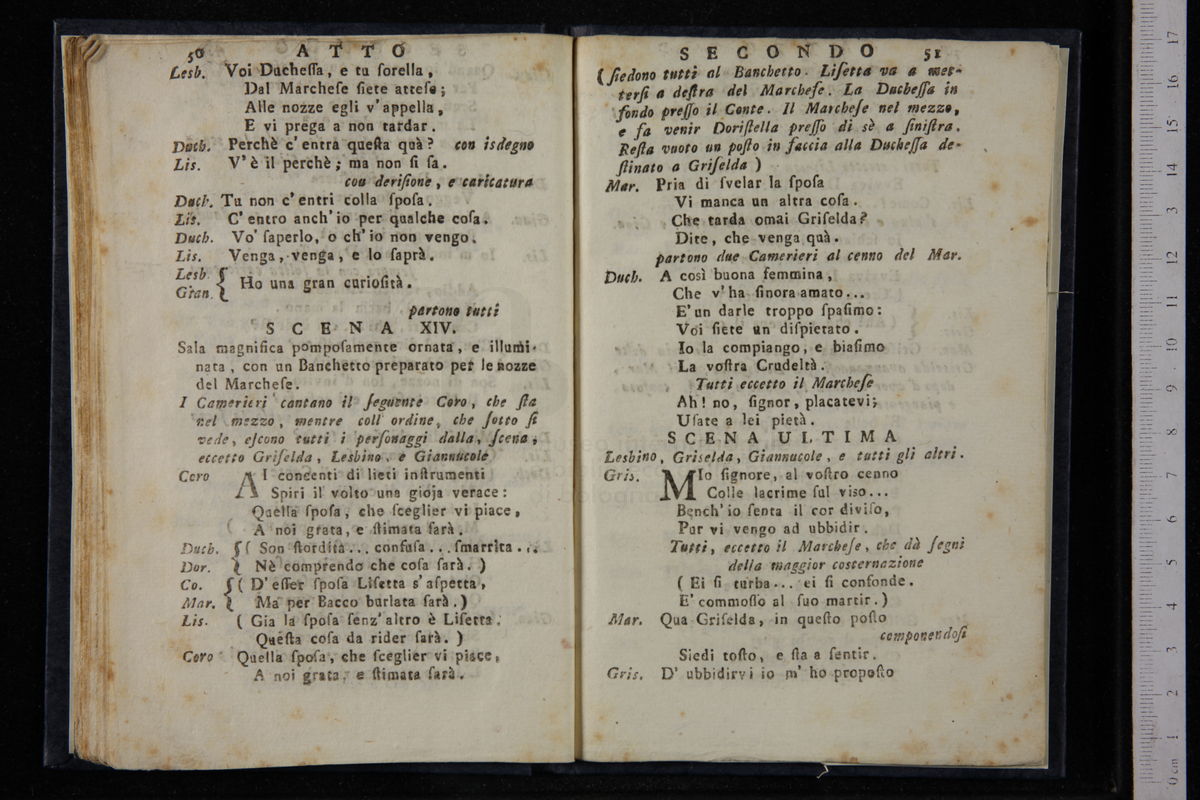 50 ATTO
Lesb. Voi Ducheſſa, e tu ſorella,
Dal Marcheſe ſiete atteſe;
Alle nozze egli v'appella,
E vi prega a non tardar.
Duch. Perchè c'entra queſta quà? con isdegno
Lis. V'è il perchè; ma non ſi ſa.
con deriſione, e caricatura
Duch. Tu non c'entri colla ſpoſa.
Lis. C'entro anch'io per qualche coſa.
Duch. Vo' ſaperlo, o ch'io non vengo.
Lis. Venga, venga, e lo ſaprà.
Lesb. { Ho una gran curioſità.
Gian.
partono tutti
SCENA XIV.
Sala magnifica pompoſamente ornata, e illumi-
nata, con un Banchetto preparato per le nozze
del Marcheſe.
I Camerieri cantano il ſeguente Coro, che ſta
nel mezzo, mentre coll'ordine, che ſotto ſi
vede, eſcono tutti i perſonaggi dalla, ſcena,
eccetto Griſelda, Lesbino, e Giannucole
Coro AI concenti di lieti inſtrumenti
Spiri il volto una gioja verace:
Quella ſpoſa, che ſceglier vi piace,
A noi grata, e ſtimata ſarà.
Duch. { ( Son ſtordita... confuſa... ſmarrita...
Dor. Nè comprendo che coſa ſarà. )
Co. { ( D'eſſer ſpoſa Liſetta s'aſpetta,
Mar. Ma per Bacco burlata ſarà. )
Lis. ( Gia la ſpoſa ſenz'altro è Liſetta.
Queſta coſa da rider ſarà. )
Coro Quella ſpoſa, che ſceglier vi piace,
A noi grata, e ſtimata ſarà.
SECONDO 51
(ſiedono tutti al Banchetto. Liſetta va a met-
terſi a deſtra del Marcheſe. La Ducheſſa in
fondo preſſo il Conte. Il Marcheſe nel mezzo,
e fa venir Doriſtella preſſo di sè a ſiniſtra.
Reſta vuoto un poſto in faccia alla Ducheſſa de-
ſtinato a Griſelda )
Mar. Pria di ſvelar la ſpoſa
Vi manca un altra coſa.
Che tarda omai Griſelda?
Dite, che venga quà.
partono due Camerieri al cenno del Mar.
Duch. A così buona femmina,
Che v'ha ſinora amato...
E'un darle troppo ſpaſimo:
Voi ſiete un diſpietato.
Io la compiango, e biaſimo
La voſtra Crudeltà.
Tutti eccetto il Marcheſe
Ah! no, ſignor, placatevi;
Uſate a lei pietà.
SCENA ULTIMA
Lesbino, Griselda, Giannucole, e tutti gli altri.
Gris. MIo ſignore, al voſtro cenno
Colle lacrime ſul viso...
Bench'io ſenta il cor diviſo,
Pur vi vengo ad ubbidir.
Tutti, eccetto il Marcheſe, che dà ſegni
della maggior coſternazione
( Ei ſi turba... ei ſi confonde.
E'commoſſo al ſuo martir.)
Mar. Qua Griſelda, in queſto poſto
componendoſi
Siedi toſto, e ſta a ſentir.
Gris. D'ubbidirvi io m'ho propoſto